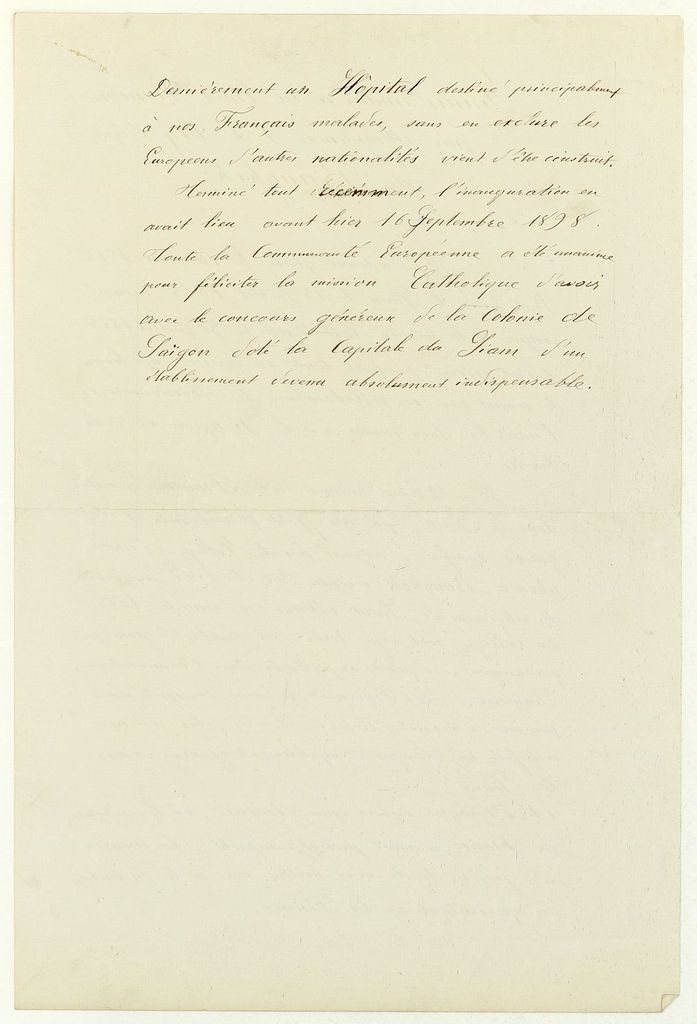 Dernièrement un Hôpital destiné principalement
à nos Français malades, sans en exclure les
Européens d'autres nationalités vient d'être construit.
Terminé tout récemment, l'inauguration en
avait lieu avant hier 16 Septembre 1898.
Toute la Communauté Européenne a été unanime
pour féliciter la mission Catholique d'avoir
avec le concours généreux de la Colonie de
Saïgon doté la Capitale du Siam d'un
établissement devenu absolument indispensable.